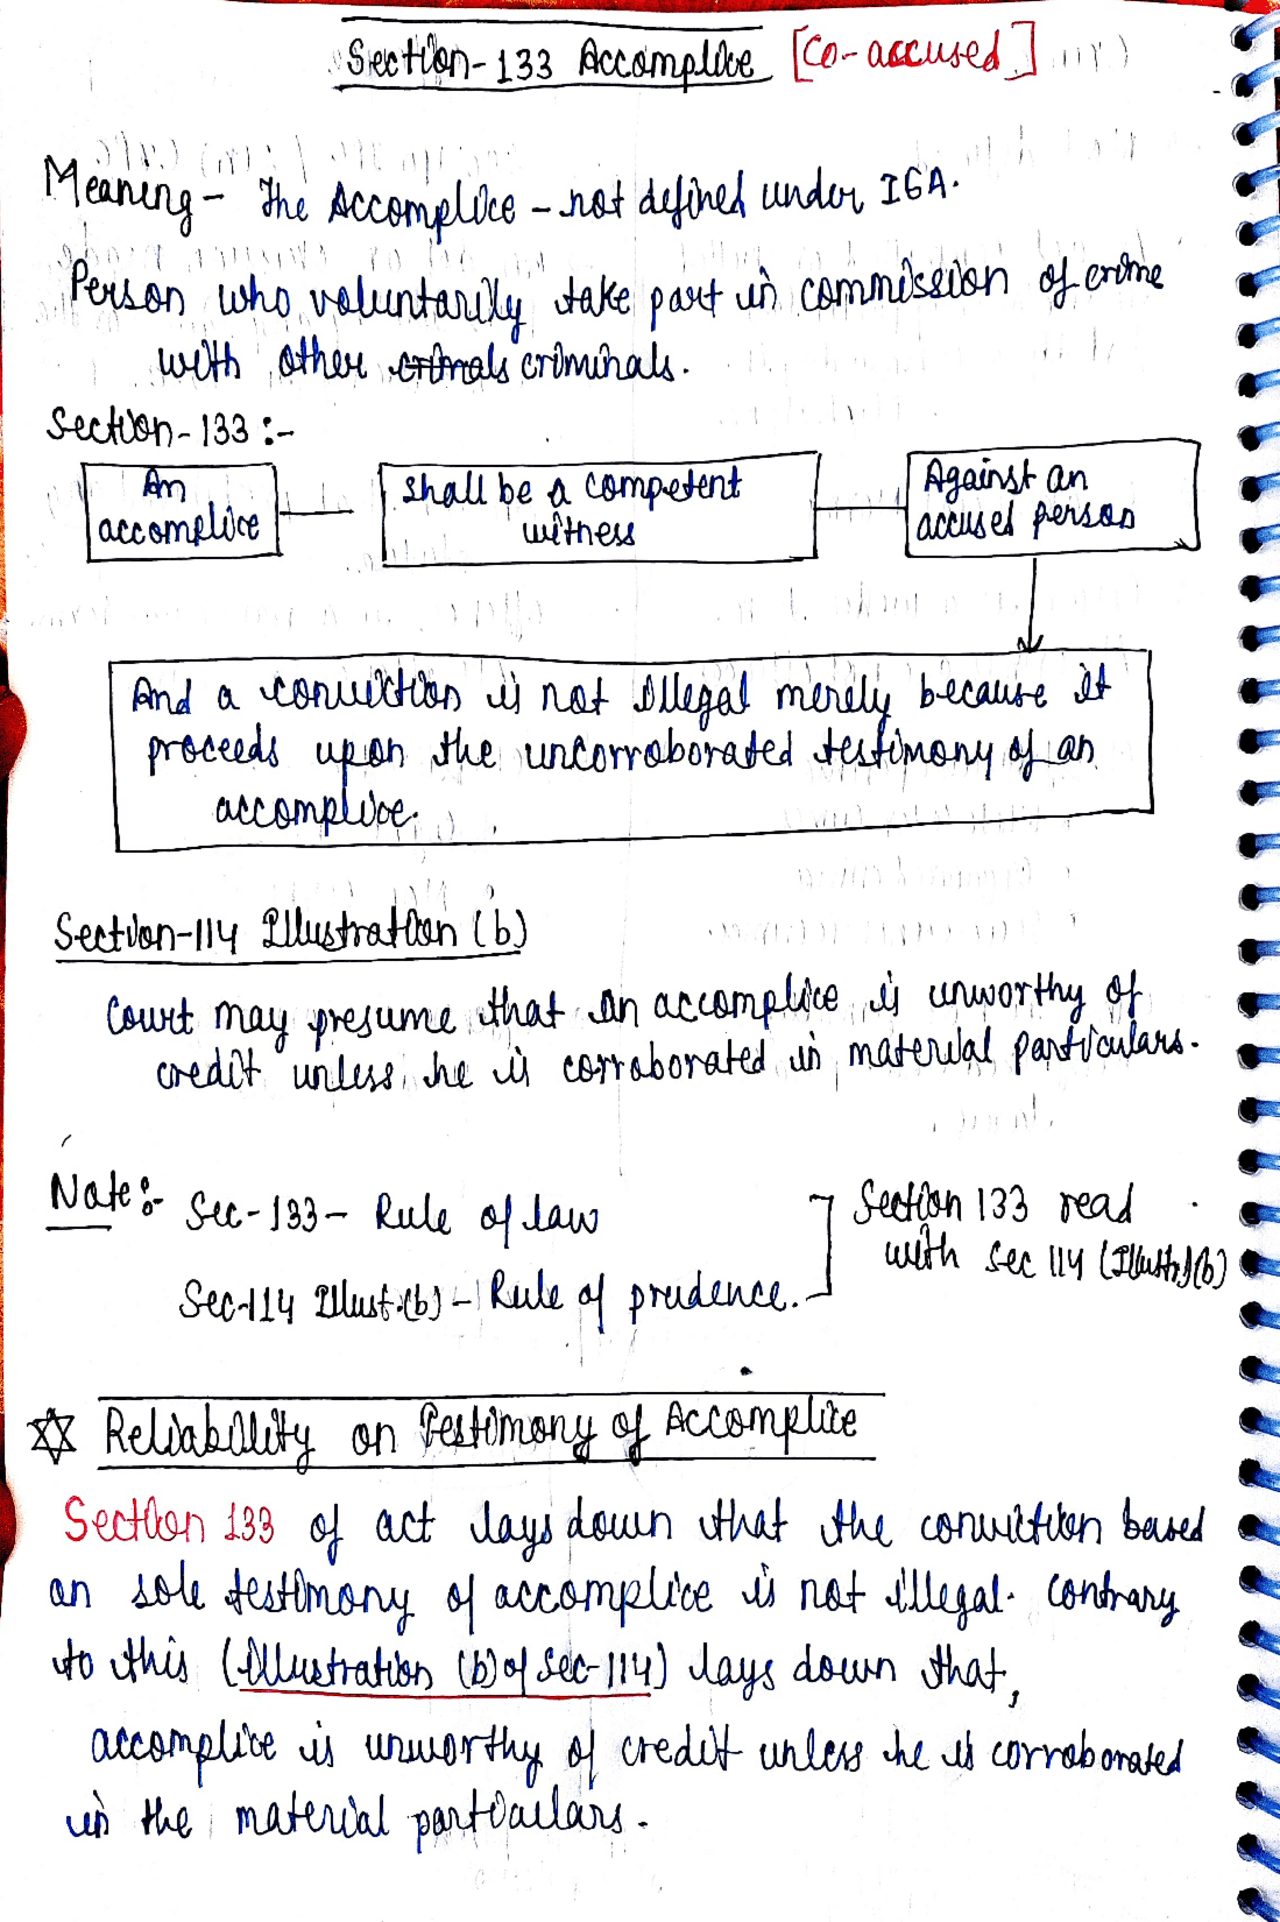 Section-133 Accomplice [Co-accused]
Meaning- The Accomplice - not defined under IEA.
Person who voluntarily take part in commission of crime
with other crimals criminals.
Section-133:-
An
accomplice
shall be a competent
witness
Against an
accused person
And a conviction is not illegal merely because it
proceeds upon the uncorroborated testimony of an
accomplice.
Section-114 Illustration (b)
Court may presume that an accomplice is unworthy of
credit unless he is corroborated in material particulars.
Note:- Sec-133- Rule of law
Sec-114 Illust.(b) - Rule of prudence.
Section 133 read
with sec 114 (Illust.)(b)
Reliability on Testimony of Accomplice
Section 133 of act lays down that the conviction based
on sole testimony of accomplice is not illegal. contrary
to this (Illustration (b) of sec-114) lays down that,
accomplice is unworthy of credit unless he is corroborated
in the material particulars.